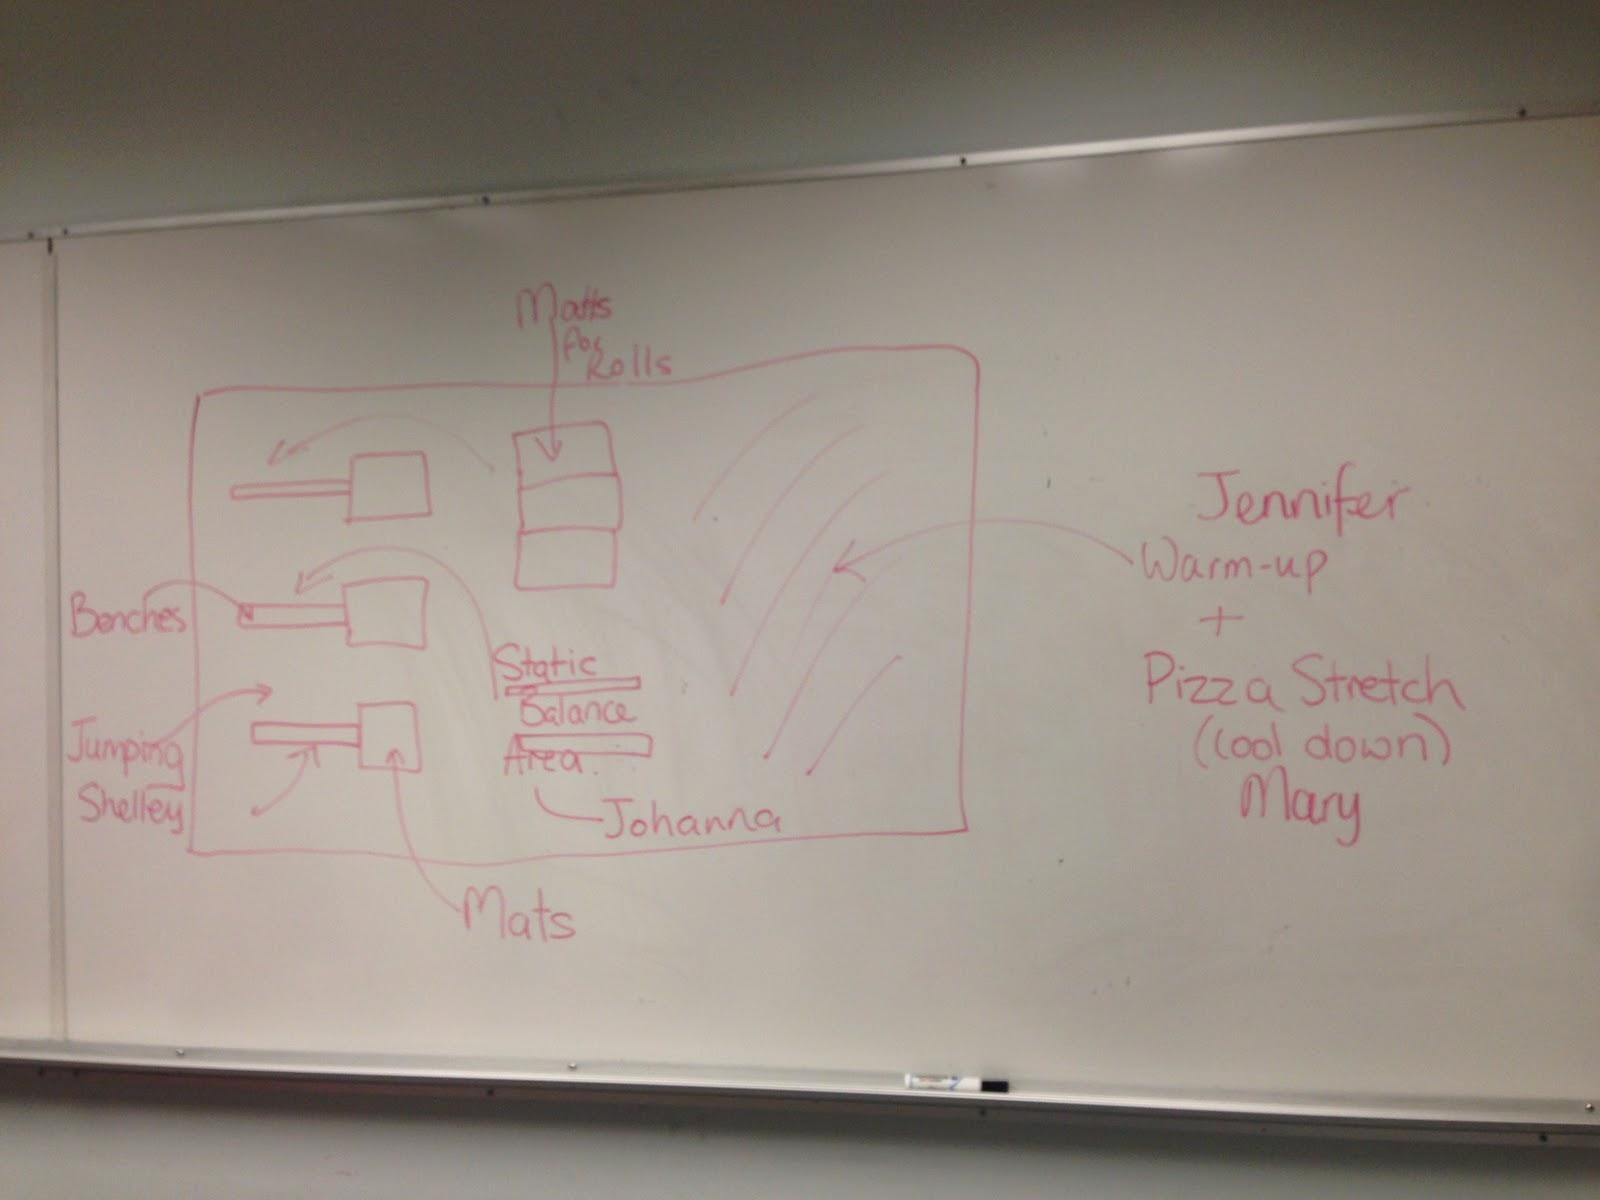 Matts
for
Rolls
Benches
Jumping
Shelley
Static
Balance
Area.
Johanna
Mats
Jennifer
Warm-up
+
Pizza Stretch
(cool down)
Mary